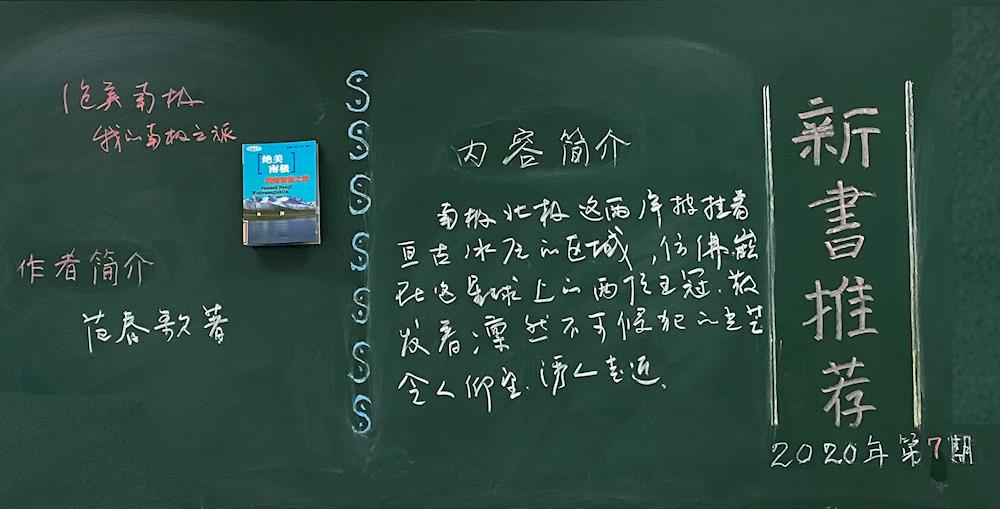 绝美南极
我的南极之旅
绝美
南极
Juemei Nanji
作者简介
范春歌著
内容简介
南极北极这两片披挂着
亘古冰层的区域，仿佛嵌
在这星球上的两顶王冠.散
发着凛然不可侵犯的光芒
令人仰望.诱人走近。
新書推荐
2020年第7期